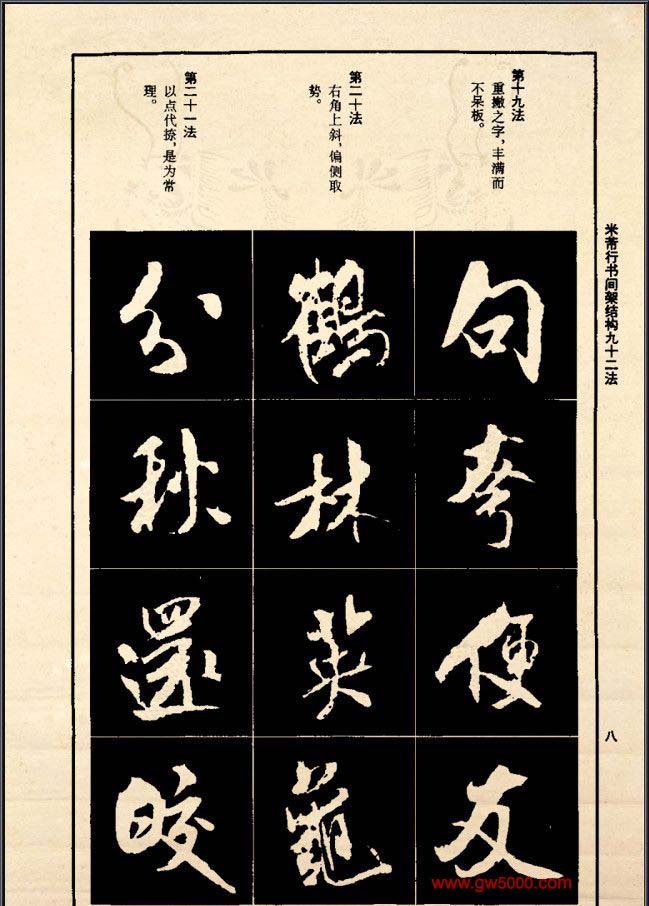 米芾行书间架结构九十二法
八
第十九法
重撇之字，丰满而
不呆板。
句
便
友
第二十法
右角上斜，偏侧取
势。
鶴
林
英
第二十一法
以点代捺，是为常
理。
分
秋
還
皎
www.gw5000.com